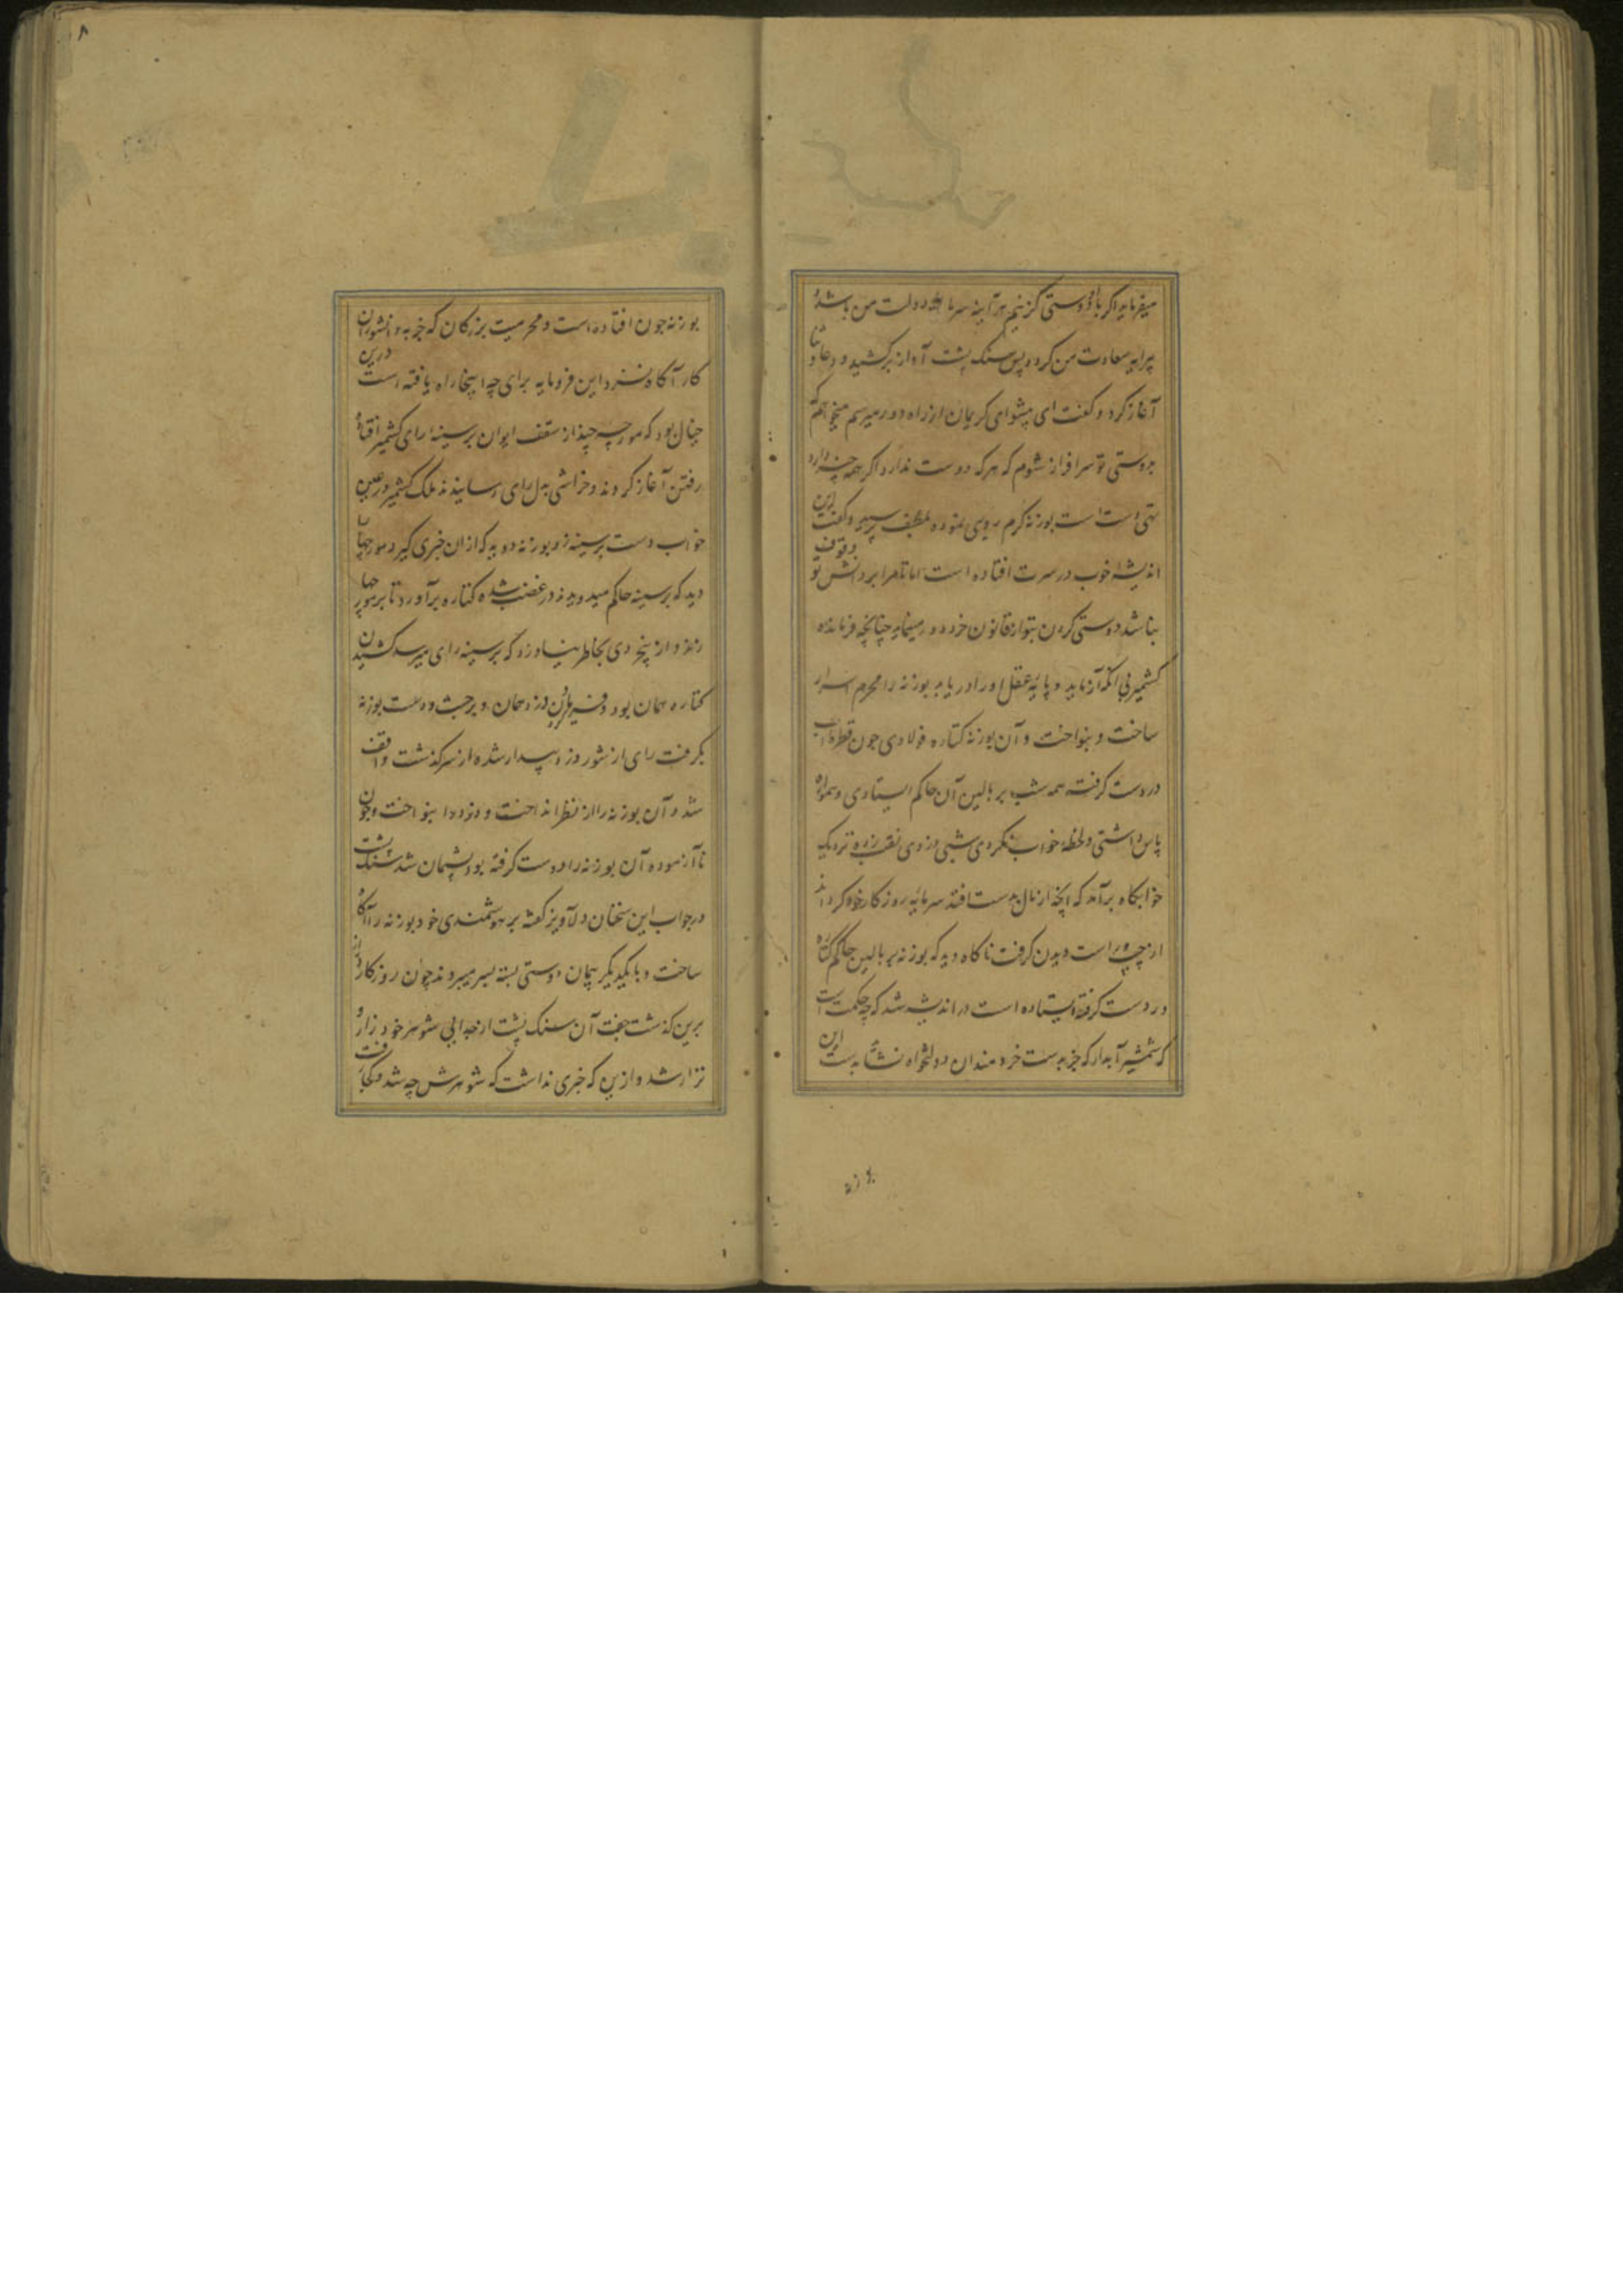 میفرماید اگر با او دوستی گزینم هرآینه سرمایه دولت من باشد و
پیرایه سعادت من گردد پس سنک پشت آواز برکشید و دعا و ثنا
آغاز کرد و گفت ای پیشوای کریمان از راه دور میرسم میخواهم که
بدوستی تو سرافراز شوم که هر که دوست ندارد اگر همه چیز دارد
تهی دست است بوزنه گرم روی نموده بلطف پرسید و گفت این
اندیشه خوب در سرت افتاده است اما تا مرا بر دانش تو وقوف
نباشد دوستی کردن بتو از قانون خرد دور مینماید چنانچه فرمانده
کشمیر بی آنکه آزماید و پایه عقل او را دریابد بوزنه را محرم اسرار
ساخت و بنواخت و آن بوزنه کتاره فولادی چون قطره آب
در دست گرفته همه شب بر بالین آن حاکم ایستادی و همواره
پاس داشتی و لحظه خواب نکردی شبی دزدی نقب زده نزدیک
خوابگاه برآمد که آنچه از مال بدست افتد سرمایه روزکار خود کرداند
از چپ و راست دیدن گرفت ناکاه دید که بوزنه بر بالین حاکم کتاره
در دست گرفته ایستاده است در اندیشه شد که چه حکمت است
که شمشیر آبدار که جز بدست خردمندان دولتخواه نشاید بدست این
بوزنه چون افتاده است و محرمیت بزرکان که جز به دانشوران
کار آکاه نسزد این فرومایه برای چه اینجا راه یافته است درین
خیال بود که مورچه چند از سقف ایوان بر سینه رای کشمیر افتاده
رفتن آغاز کردند و خراشی بدل رای رسانیدند ملک کشمیر در عین
خواب دست بر سینه زد بوزنه دوید که ازان خبری کیرد مورچها
دید که بر سینه حاکم میدویدند در غضب شده کتاره برآورد تا بر مورچها
زند و از بیخردی بخاطر نیاورد که بر سینه رای میرسد کشیدن
کتاره همان بود و فریاد زدن دزد همان و برجست و دست بوزنه
بکرفت رای از شور دزد بیدار شده از سرکذشت واقف
شد و آن بوزنه را از نظر انداخت و دزد را بنواخت و چون
ناآزموده آن بوزنه را دوست کرفته بود پشیمان شد سنک پشت
در جواب این سخنان دلآویز کفته بر هوشمندی خود بوزنه را آکاه
ساخت و با یکدیکر پیمان دوستی بسته بسر میبردند چون روزکار دراز
برین کذشت جفت آن سنک پشت از جدایی شوهر خود زار و
نزار شد و ازین که خبری نداشت که شوهرش چه شد و کجا رفت
بوزنه